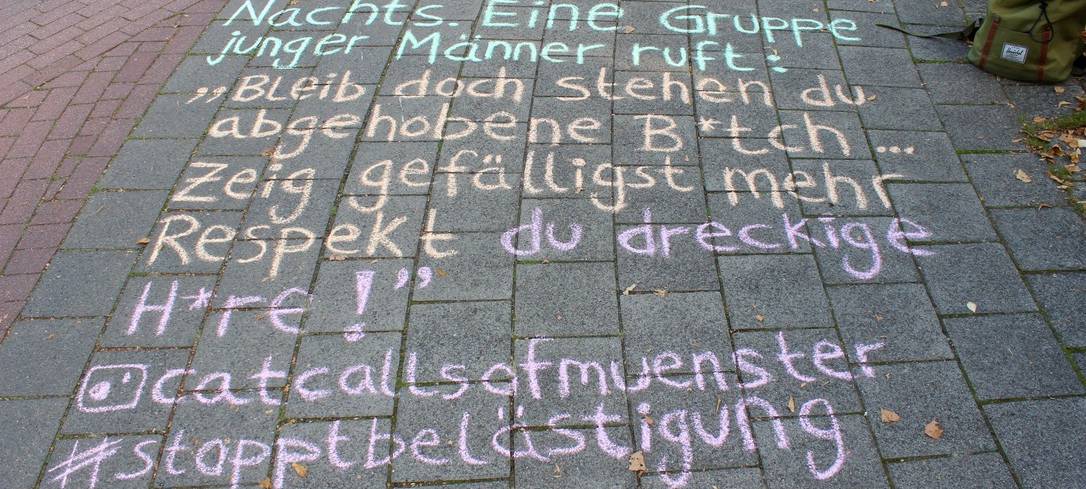 Nachts. Eine Gruppe
junger Männer ruft:
„Bleib doch stehen du
abgehobene B*tch...
Zeig gefälligst mehr
Respekt du dreckige
H*re!”
catcallsofmuenster
#stopptbelästigung